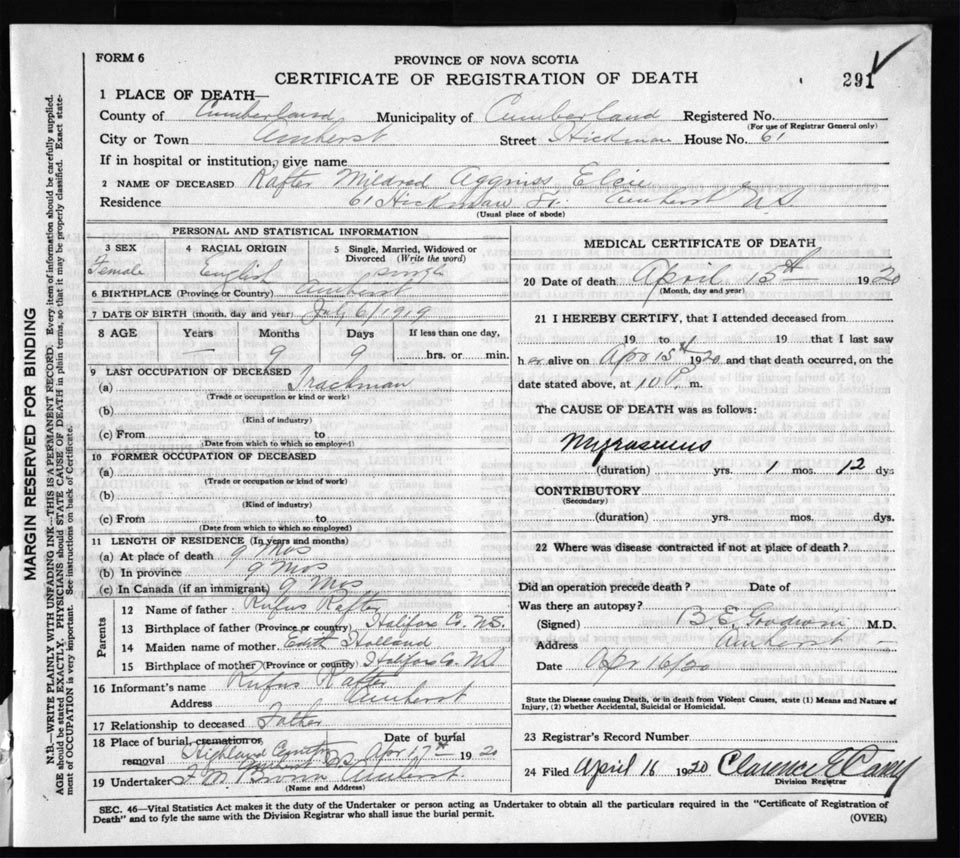 FORM 6
PROVINCE OF NOVA SCOTIA
CERTIFICATE OF REGISTRATION OF DEATH
291
1 PLACE OF DEATH—
County of Cumberland Municipality of Cumberland Registered No.
(For use of Registrar General only)
City or Town Amherst Street Hickman House No. 61
If in hospital or institution, give name
2 NAME OF DECEASED Rafter Mildred Elsie
Residence 61 Hickman St. Amherst N.S.
(Usual place of abode)
PERSONAL AND STATISTICAL INFORMATION
3 SEX 4 RACIAL ORIGIN 5 Single, Married, Widowed or Divorced (Write the word)
Female English single
6 BIRTHPLACE (Province or Country) Amherst
7 DATE OF BIRTH (month, day and year) July 6/1919
8 AGE Years Months Days If less than one day,
— 9 9 hrs. or min.
9 LAST OCCUPATION OF DECEASED
(a) Trackman
(Trade or occupation or kind or work)
(b)
(Kind of industry)
(c) From to
(Date from which to which so employed)
10 FORMER OCCUPATION OF DECEASED
(a)
(Trade or occupation or kind or work)
(b)
(Kind of industry)
(c) From to
(Date from which to which so employed)
11 LENGTH OF RESIDENCE (In years and months)
(a) At place of death 9 Mos
(b) In province 9 Mos
(c) In Canada (if an immigrant) 9 Mos
Parents
12 Name of father Rufus Rafter
13 Birthplace of father (Province or country) Halifax Co. N.S.
14 Maiden name of mother Holland
15 Birthplace of mother (Province or country) Halifax Co. N.S.
16 Informant's name Rufus Rafter
Address Amherst
17 Relationship to deceased Father
18 Place of burial, cremation or removal Date of burial
Highland Cemetery Amherst N.S. Apr 17th 1920
19 Undertaker F. M. Brown Amherst
(Name and Address)
MEDICAL CERTIFICATE OF DEATH
20 Date of death April 15th 1920
(Month, day and year)
21 I HEREBY CERTIFY, that I attended deceased from
19 to 19 that I last saw
her alive on Apr 15th 1920 and that death occurred, on the
date stated above, at 10 P. m.
The CAUSE OF DEATH was as follows:
(duration) yrs. 1 mos. 12 dys
CONTRIBUTORY
(Secondary)
(duration) yrs. mos. dys.
22 Where was disease contracted if not at place of death?
Did an operation precede death? Date of
Was there an autopsy?
(Signed) B. E. Goodwin M.D.
Address Amherst
Date Apr 16/20
State the Disease causing Death, or in death from Violent Causes, state (1) Means and Nature of
Injury, (2) whether Accidental, Suicidal or Homicidal.
23 Registrar's Record Number
24 Filed April 16 1920 Clarence E.
Division Registrar
SEC. 46—Vital Statistics Act makes it the duty of the Undertaker or person acting as Undertaker to obtain all the particulars required in the "Certificate of Registration of
Death" and to fyle the same with the Division Registrar who shall issue the burial permit.
(OVER)
MARGIN RESERVED FOR BINDING
N.B.—WRITE PLAINLY WITH UNFADING INK—THIS IS A PERMANENT RECORD. Every item of information should be carefully supplied.
AGE should be stated EXACTLY. PHYSICIANS should STATE CAUSE OF DEATH in plain terms, so that it may be properly classified. Exact state-
ment of OCCUPATION is very important. See instructions on back of Certificate.